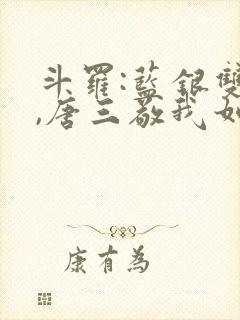 斗羅:藍銀雙
,唐三敬我如
康有為